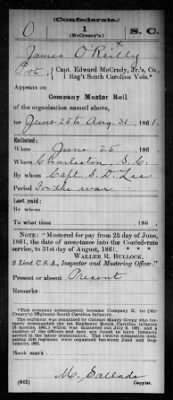 (Confederate.)
O
1
(McCreary's.)
S. C.
James O'Reilly
Pvt., Capt. Edward McCrady, Jr.'s, Co.,
1 Reg't South Carolina Vols.*
Appears on
Company Muster Roll
of the organization named above,
for June 25 to Aug. 31, 1861.
Enlisted:
When June 25, 186 .
Where Charleston, S. C.
By whom Capt. S. D. Lee
Period For the war
Last paid:
By whom
To what time , 186 .
NOTE: "Mustered for pay from 25 day of June,
1861, the date of acceptance into the Confederate
service, to 31st day of August, 1861. * * *
WALLER R. BULLOCK,
2 Lieut C. S. A., Inspector and Mustering Officer."
Present or absent Present
Remarks:
*This company subsequently became Company K, 1st (Mc-
Creary's) Regiment South Carolina Infantry.
Book mark:
(642)
Copyist.